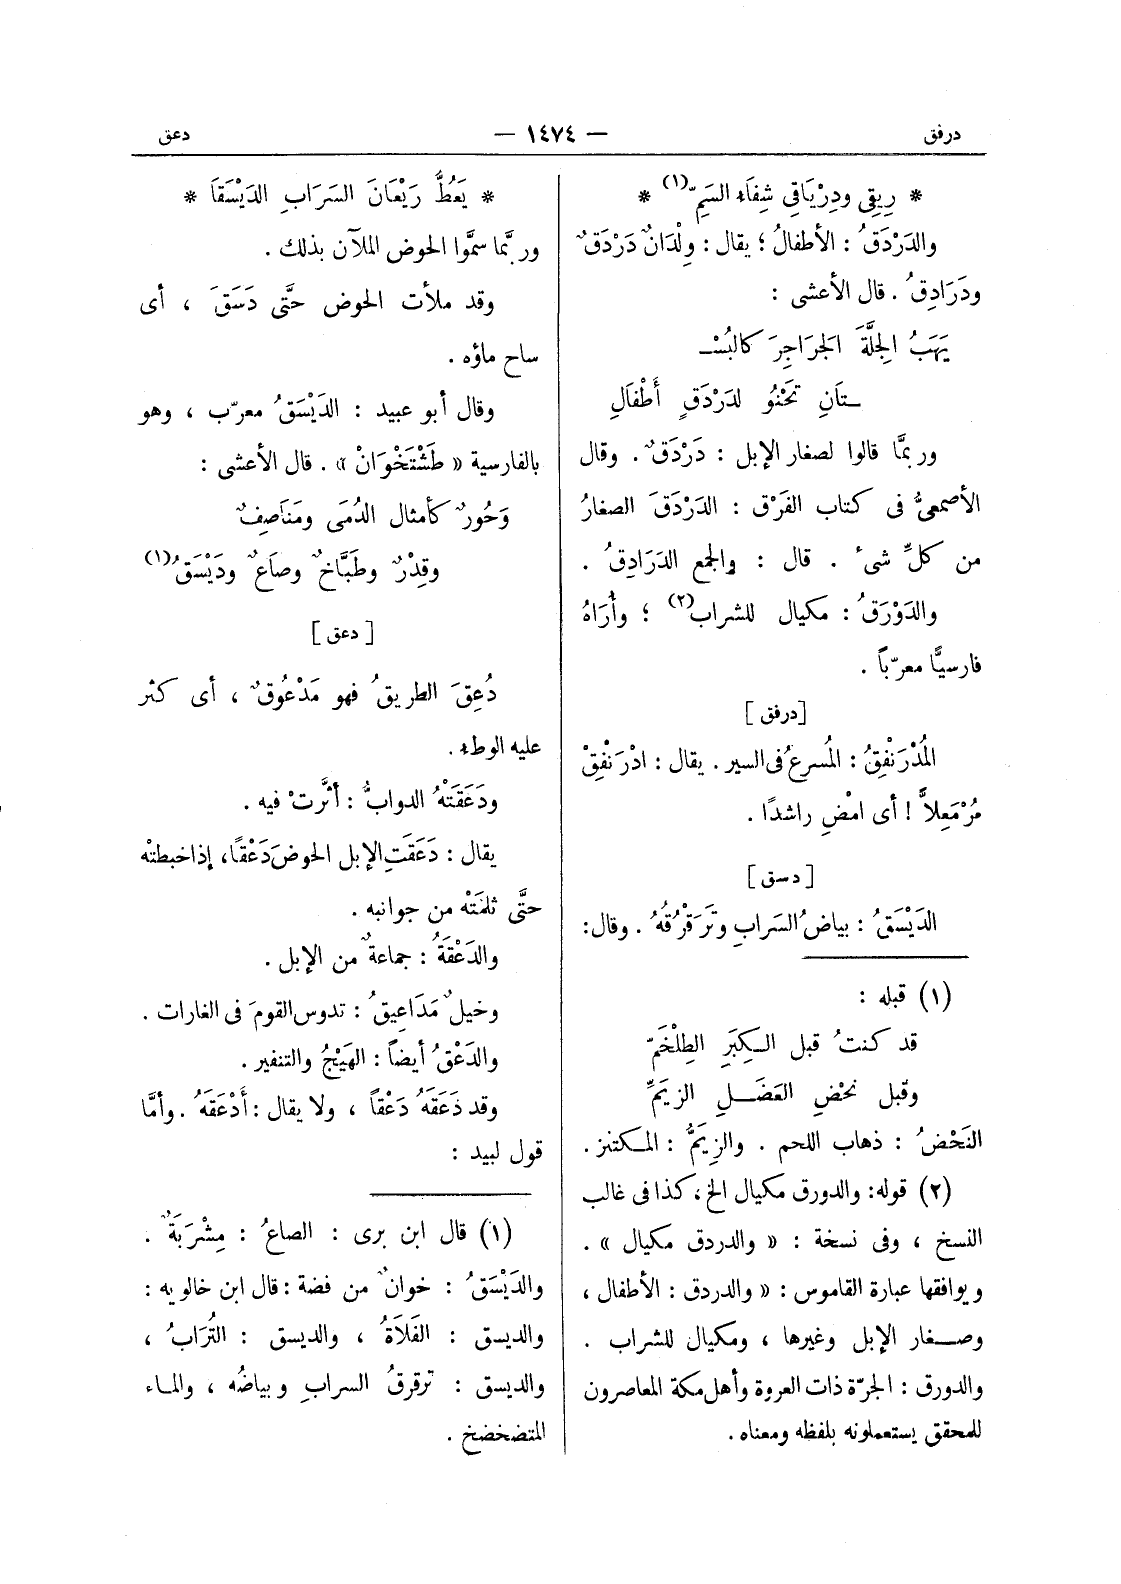 درفق — ١٤٧٤ — دعق
* رِيقِى ودِرْيَاقِى شِفَاءِ السَمِّ (١) *
والدَرْدَقُ : الأطفالُ ؛ يقال : وِلْدَانٌ دَرْدَقٌ
ودَرَادِقُ . قال الأعشى :
يَهَبُ الجِلَّةَ الجَرَاجِرَ كالبُسْـ
ـتَانِ تَحْنُو لدَرْدَقٍ أَطْفَالِ
وربَّما قالوا لصغار الإبل : دَرْدَقٌ . وقال
الأصمعىُّ فى كتاب الفَرْق : الدَرْدَقَ الصغارُ
من كلِّ شىءٍ . قال : والجمع الدَرَادِقُ .
والدَوْرَقُ : مكيال للشراب (٢) ؛ وأُرَاهُ
فارسيًّا معرّباً .
[ درفق ]
المُدْرَنْفِقُ : المُسرعُ فى السير . يقال : ادْرَنْفِقْ
مُرْمَعِلاًّ ! أى امْضِ راشدًا .
[ دسق ]
الدَيْسَقُ : بياضُ السَرابِ وتَرَقْرُقُهُ . وقال :
(١) قبله :
قد كنتُ قبل الـكِبَرِ الطِلْخَمّ
وقبل نَحْضِ العَضَـــلِ الزِيَمِّ
النَحْضُ : ذهاب اللحم . والزِيَمُّ : المـكتنز .
(٢) قوله : والدورق مكيال الخ ، كذا فى غالب
النسخ ، وفى نسخة : « والدردق مكيال » .
ويوافقها عبارة القاموس : « والدردق : الأطفال ،
وصــغار الإبل وغيرها ، ومكيال للشراب .
والدورق : الجرّة ذات العروة وأهل مكة المعاصرون
للمحقق يستعملونه بلفظه ومعناه .
* يَعُطُّ رَيْعَانَ السَرَابِ الدَيْسَقَا *
وربَّما سمَّوا الحوض الملآن بذلك .
وقد ملأت الحوض حتَّى دَسَقَ ، أى
ساح ماؤه .
وقال أبو عبيد : الدَيْسَقُ معرّب ، وهو
بالفارسية « طَشْتَخْوَانْ » . قال الأعشى :
وَحُورٌ كأمثال الدُمَى ومَنَاصِفٌ
وقِدْرٌ وطَبَّاخٌ وصَاعٌ ودَيْسَقُ (١)
[ دعق ]
دُعِقَ الطريقُ فهو مَدْعُوقٌ ، أى كثر
عليه الوطء .
ودَعَقَتْهُ الدوابُّ : أثَّرتْ فيه .
يقال : دَعَقَتِ الإبل الحوض دَعْقًا ، إذا خبطتْه
حتَّى ثلمَتْه من جوانبه .
والدَعْقَةُ : جماعةٌ من الإبل .
وخيلٌ مَدَاعِيقُ : تدوس القومَ فى الغارات .
والدَعْقُ أيضاً : الهَيْجُ والتنفير .
وقد دَعَقَهُ دَعْقاً ، ولا يقال : أَدْعَقَهُ . وأمَّا
قول لبيد :
(١) قال ابن برى : الصاعُ : مِشْرَبَةٌ .
والدَيْسَقُ : خوانٌ من فضة : قال ابن خالويه :
والديسق : الفَلَاةُ ، والديسق : التُرَابُ ،
والديسق : ترقرقُ السرابِ وبياضُه ، والمـاء
المتضخضخ .